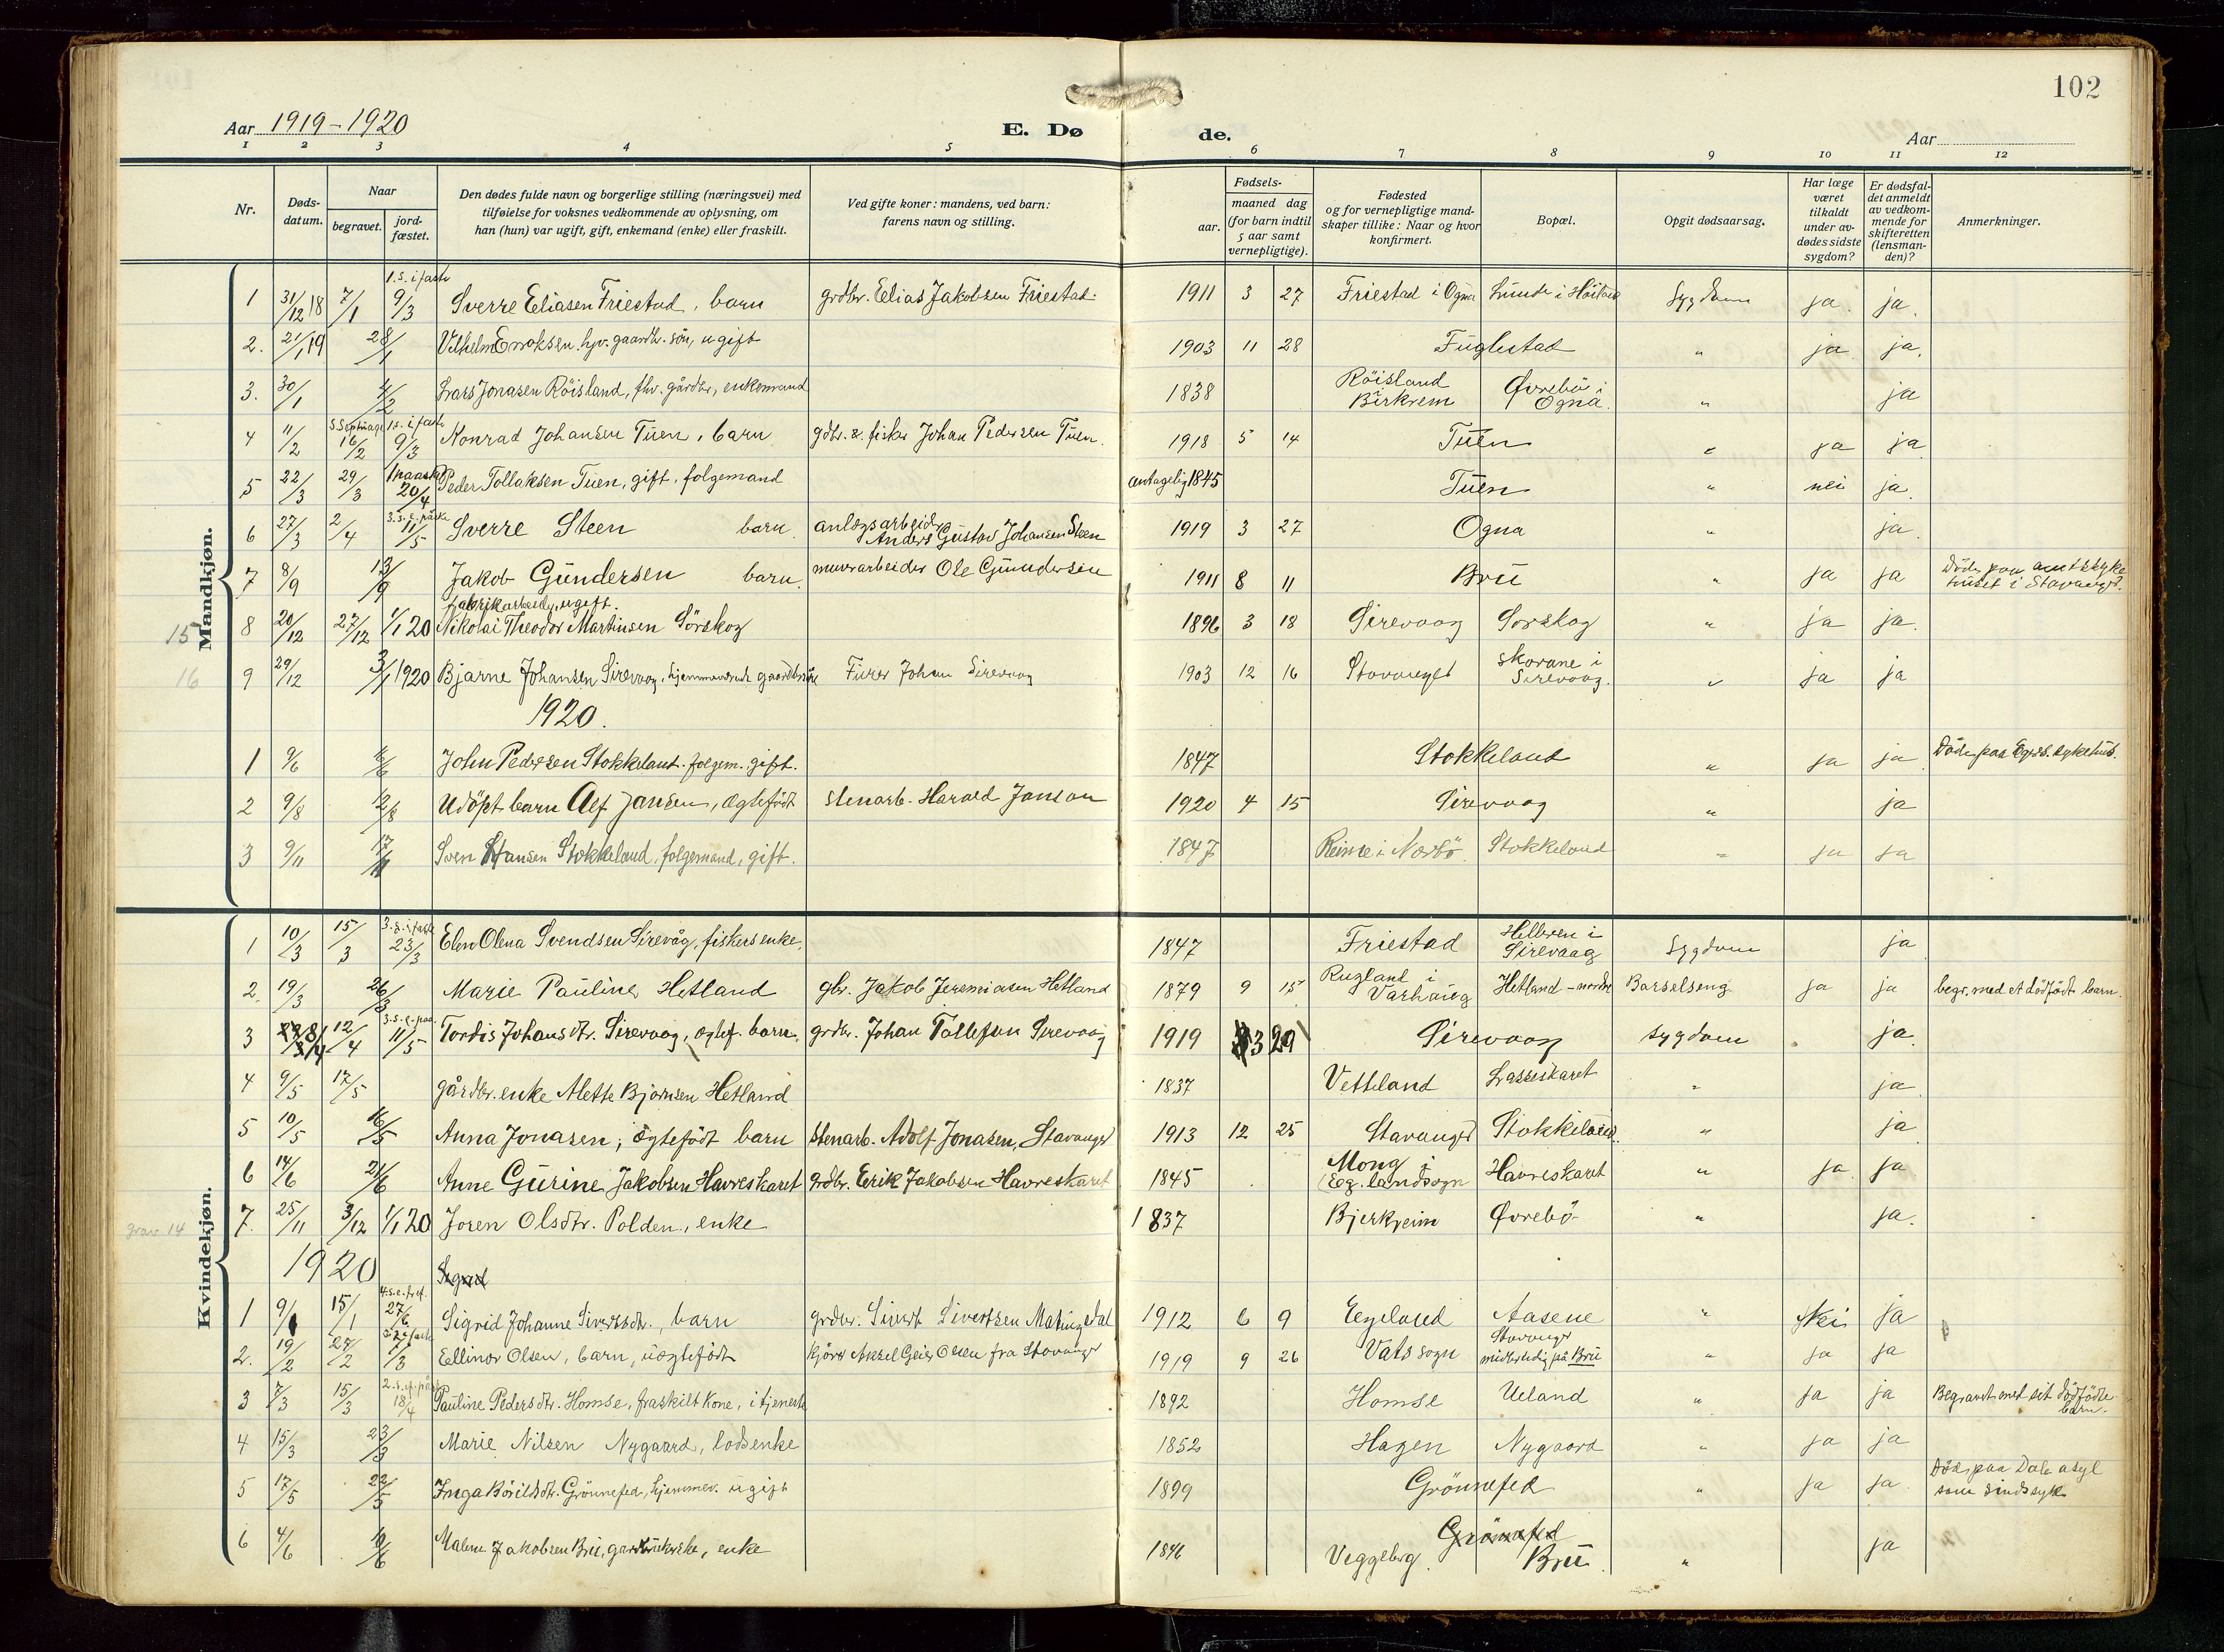 102
Aar 1919-1920
E. Dø
de.
Aar
1 2 3 4 5 6 7 8 9 10 11 12
Nr.
Døds-
datum.
Naar
begravet.
jord-
fæstet.
Den dødes fulde navn og borgerlige stilling (næringsvei) med
tilføielse for voksnes vedkommende av oplysning, om
han (hun) var ugift, gift, enkemand (enke) eller fraskilt.
Ved gifte koner: mandens, ved barn:
farens navn og stilling.
Fødsels-
aar.
maaned dag
(for barn indtil
5 aar samt
vernepligtige).
Fødested
og for vernepligtige mand-
skaper tillike: Naar og hvor
konfirmert.
Bopæl.
Opgit dødsaarsag.
Har læge
været
tilkaldt
under av-
dødes sidste
sygdom?
Er dødsfal-
det anmeldt
av vedkom-
mende for
skifteretten
(lensman-
den)?
Anmerkninger.
Mandkjøn.
1 31/12 18 7/1 1.s. i faste 9/3 Sverre Eliasen Friestad, barn grdbr. Elias Jakobsen Friestad 1911 3 27 Friestad i Ogna Lunde i Høiland Sygdom ja. ja.
2. 21/1 19 28/1 Vilhelm Eriksen hjv. gaardbr. søn, ugift 1903 11 28 Fuglestad " ja ja.
3. 30/1 4/2 Lars Jonasen Röisland, fhv. gårdbr, enkemand 1838 Röisland Birkrem Øvrebö i Ogna. " ja
4 11/2 S. Septuag. 16/2 1.s. i faste 9/3 Konrad Johansen Tuen, barn gdbr. & fisker Johan Pedersen Tuen. 1918 5 14 Tuen " ja ja
5 22/3 29/3 20/4 Peder Tollaksen Tuen, gift, folgemand antagelig 1845 Tuen " nei ja.
6 27/3 2/4 3.s.e. påske 11/5 Sverre Steen barn. anlægsarbeider Anders Gustav Johansen Steen 1919 3 27 Ogna " ja.
7 8/9 13/9 Jakob Gundersen barn. murarbeider Ole Gundersen 1911 8 11 Bru " ja ja Död paa amtssyke huset i Stavanger.
15 8 20/12 27/12 1/1 20 fabrikarbeider, ugift. Nikolai Theodor Martinsen Sörskog 1896 3 18 Sirevaag Sorskog " ja ja.
16 9 29/12 3/1 1920 Bjarne Johansen Sirevaag, hjemmeværende gaardbr.sön Furer Johan Sirevaag 1903 12 16 Stavanger Skorane i Sirevaag. " ja ja
1920.
1 9/6 16/6 John Pedersen Stokkeland. folgem. gift. 1847 Stokkeland " ja ja Död paa Egers. sykehus.
2 9/8 12/8 Udöpt barn Alf Jansen, ægtefödt stenarb. Harald Janson 1920 4 15 Sirevaag " ja
3 9/11 17/11 Sven Hansen Stokkeland, folgemand, gift. 1847 Reime i Nærbö Stokkeland " ja ja
Kvindekjøn.
1 10/3 15/3 3.s. i faste 23/3 Elen Olena Svendsen Sirevåg, fiskers enke. 1847 Friestad Helleren i Sirevaag Sygdom ja
2. 19/3 26/3 Marie Pauline Hetland gbr. Jakob Jeremiasen Hetland 1879 9 15 Rugland i Varhaug Hetland - nordre Barselseng. ja ja begr. med et dödfödt barn.
3 8/4 12/4 3.s.e. paa. 11/5 Tordis Johansdtr. Sirevaag, ægtef. barn. grdbr. Johan Tollefsen Sirevaag 1919 3 29 Sirevaag sygdom ja.
4 9/5 17/5 gårdbr. enke Mette Bjørnsen Hetland 1837 Vetteland Lasseskaret " ja
5 10/5 16/5 Anna Jonasen, ægtefödt barn stenarb. Adolf Jonasen, Stavanger 1913 12 25 Stavanger Stokkeland. " ja
6 14/6 21/6 Anne Gurine Jakobsen Havreskaret grdbr. Eerik Jakobsen Havreskaret 1845 Mong i (Eg. landsogn Havreskaret " ja. ja
grav 14 7. 25/11 3/12 1/1 20 Joren Olsdtr. Polden, enke 1837 Bjerkreim Øvrebö " ja.
1920 Sigrid
1 9/1 15/1 4.s.e. tref. 27/6 Sigrid Johanne Sivertsdtr., barn grdbr. Sivert Sivertsen Matingsdal 1912 6 9 Egeland Aasene " Nei ja
2. 19/2 27/2 Ellinor Olsen, barn, uægtefödt Kjörer Aksel Geier Olsen fra Stavanger 1919 9 26 Vats sogn Stavanger midlertidig på Bru " ja ja
3 7/3 15/3 2.s.ef. påske 18/4 Pauline Pedersdtr. Homse, fraskilt kone, i tjeneste 1892 Homse Ueland " ja ja Begravet med sit dödfödte barn.
4 15/3 23/3 Marie Nilsen Nygaard, lodsenke 1852 Hagen Nygaard " ja ja
5 17/5 22/5 Inga Böilsdtr. Grönnefed, hjemmev. ugift 1899 Grönnefed " ja ja Död paa Dale asyl som sindssyk
6 4/6 10/6 Malene Jakobsen Bru, gaardbrukerske, enke 1846 Grönnefed Veggeberg. Bru. " ja